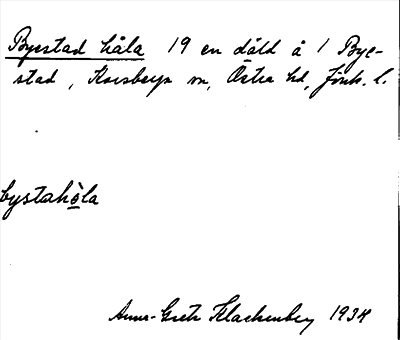 Byestad håla 19 en däld å 1 Bye-
stad, Korsberga sn, Östra hd, Jönk. l.
bystahòla
Anna-Greta Klackenberg 1934